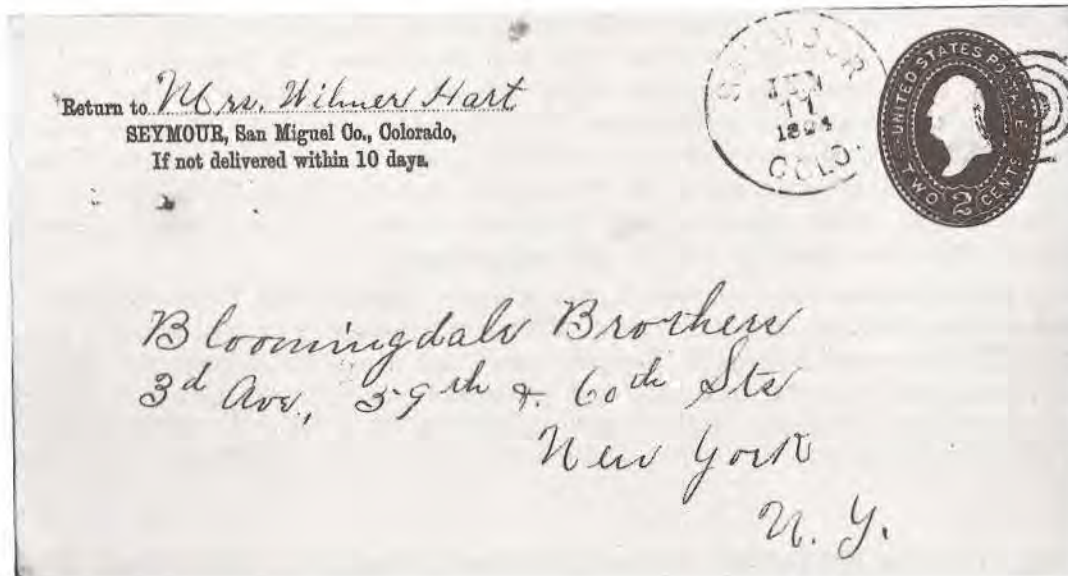 Return to Mrs. Wilmer Hart
SEYMOUR, San Miguel Co., Colorado,
If not delivered within 10 days.
SEYMOUR
JUN
11
1894
COLO.
UNITED STATES POSTAGE
TWO 2 CENTS
Bloomingdale Brothers
3d Ave., 59th & 60th Sts
New York
N. Y.